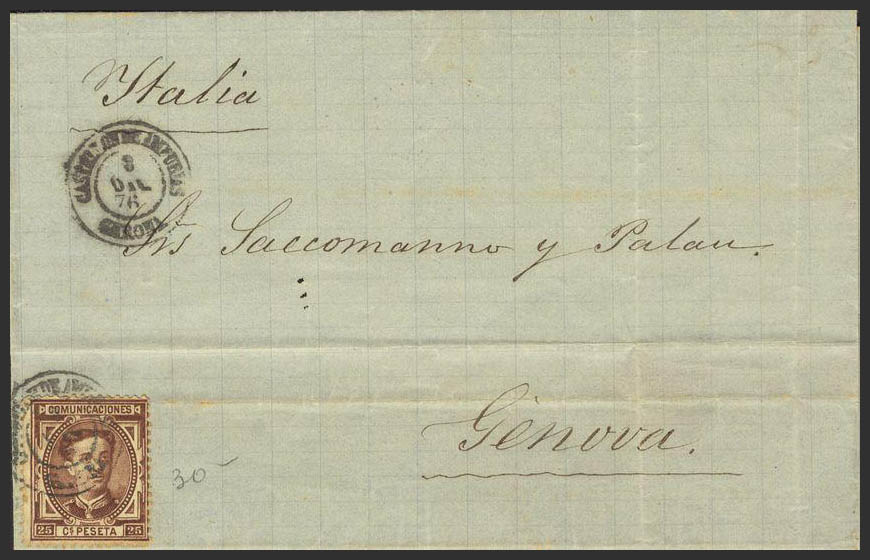 Italia
CASTELLON DE AMPURIAS
8
DIC
76
GERONA
Srs Saccomanno y Palau.
Génova.
30-
COMUNICACIONES
25 Cs PESETA 25